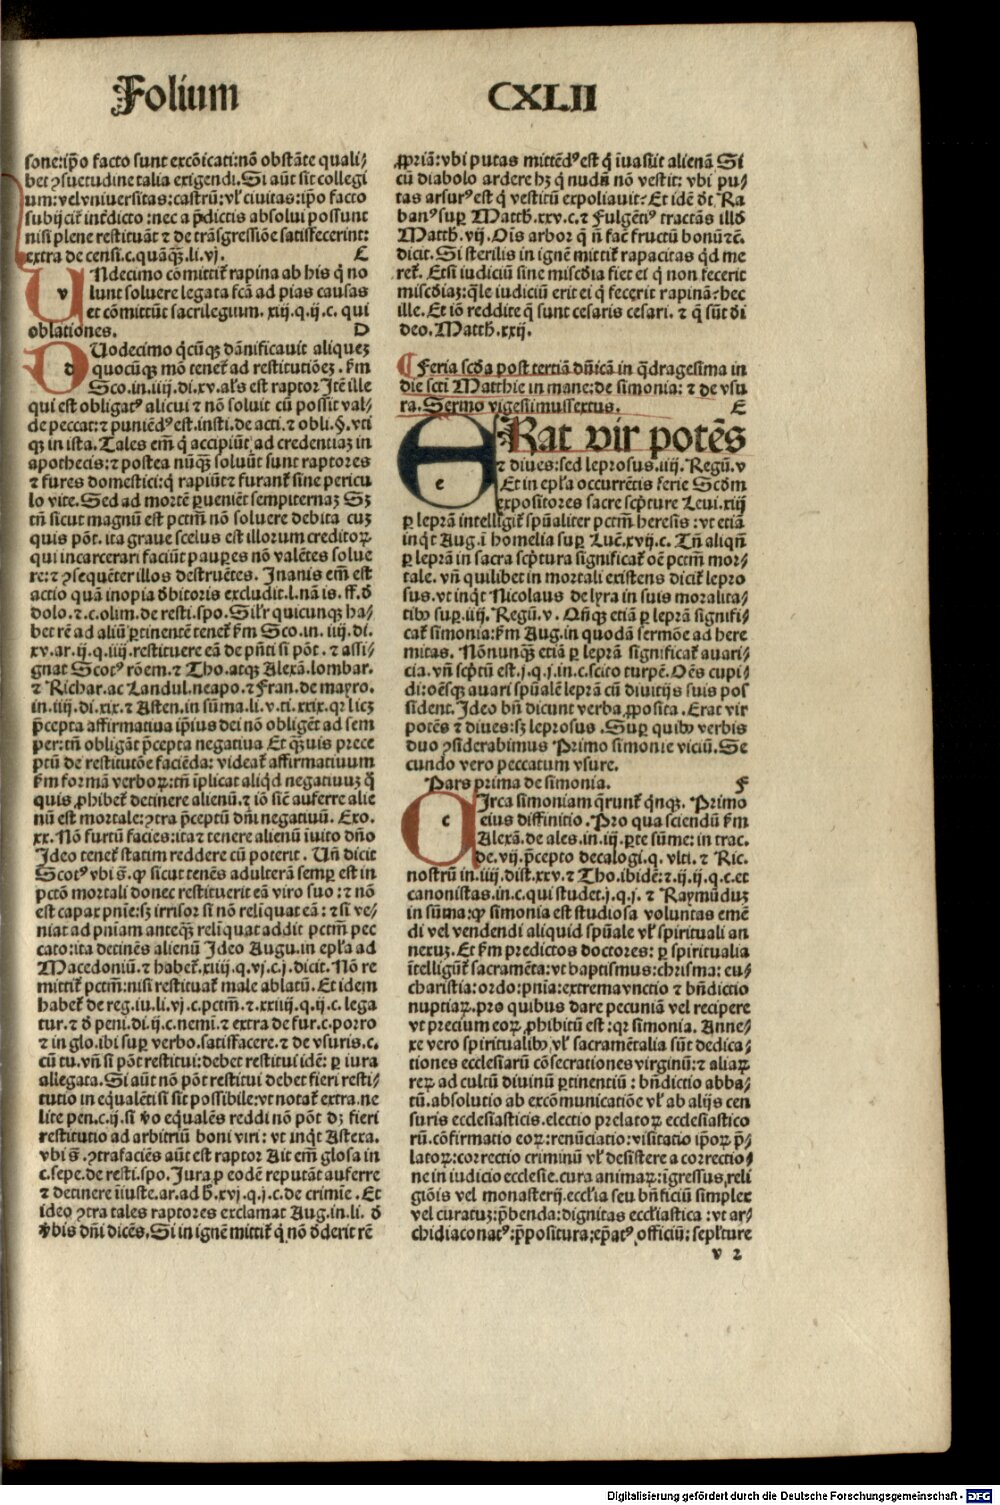 Folium CXLII
sone:ip̄o facto sunt excōicati:nō obstāte quali⸗
bet ꝯsuetudine talia exigendi. Si aūt sit collegi
um: vel vniuersitas: castrū: vl̓ ciuitas: ip̄o facto
subijcit̄ int̓dicto: nec a p̄dictis absolui possunt
nisi plene restituāt ⁊ de trāsgressiōe satisfecerint:
extra de censi.c.quāqꝫ.li.vj. C
v Ndecimo cōmittit̄ rapina ab his q̇ no
lunt soluere legata fcā ad pias causas
et cōmittūt sacrilegium. xiij.q.ij.c. qui
oblationes. D
d Uodecimo q̇cūqꝫ dānificauit aliquez
quocūqꝫ mō tenet̄ ad restitutiōez. k̄m
Sco.in.iiij.di.xv.al̓s est raptor Itē ille
qui est obligatꝰ alicui ⁊ nō soluit cū possit val⸗
de peccat: ⁊ puniēdꝰ est.insti.de acti.⁊ obli.§.vti
qꝫ in ista. Tales em̄ q̇ accipiūt ad credentiaz in
apothecis: ⁊ postea nūqꝫ soluūt sunt raptores
⁊ fures domestici: q̇ rapiūt ⁊ furant̄ sine pericu
lo vite. Sed ad mortē ꝑueniēt sempiternaz Sꝫ
tn̄ sicut magnū est pctm̄ nō soluere debita cuz
quis pōt. ita graue scelus est illorum creditoꝝ
qui incarcerari faciūt pauꝑes nō valētes solue
re: ⁊ ꝯsequēter illos destruētes. Inanis em̄ est
actio quā inopia d̓bitoris excludit.l.nā is.ff.d̓
dolo.⁊.c.olim.de resti.spo. Sil̓r quicunqꝫ ha⸗
bet rē ad aliū ꝑtinentē tenet̄ k̄m Sco.in. iiij.di.
xv.ar.ij.q.iiij.restituere eā de pn̄ti si pōt. ⁊ assi⸗
gnat Scotꝰ rōem.⁊ Tho.atqꝫ Alexā.lombar.
⁊ Richar.ac Landul.neapo.⁊ Fran.de mayro.
in.iiij.di.xix.⁊ Asten.in sūma.li.v.ti.xxix.qꝛ licꝫ
p̄cepta affirmatiua ip̄ius dei nō obligēt ad sem
per: tn̄ obligāt p̄cepta negatiua Et q̄uis prece
ptū de restitutōe faciēda: videat̄ affirmatiuum
k̄m formā verboꝝ: tn̄ īplicat aliq̇d negatiuuz q̇
quis ꝓhibet̄ detinere alienū.⁊ iō sic̄ auferre alie
nū est mortale: ꝯtra p̄ceptū dn̄i negatiuū. Exo.
xx. Nō furtū facies: ita ⁊ tenere alienū īuito dn̄o
Ideo tenet̄ statim reddere cū poterit. Un̄ dicit
Scotꝰ vbi s̄. ꝙ sicut tenēs adulterā semꝑ est in
pctō mortali donec restituerit eā viro suo: ⁊ nō
est capax pn̄ie: sꝫ irrisoꝛ si nō relīquat eā: ⁊ si ve⸗
niat ad pn̄iam anteqꝫ relīquat addit pctm̄ pec
cato: ita detinēs alienū Ideo Augu.in ep̄la ad
Macedoniū.⁊ habet̄.xiiij.q.vj.c.j.dicit. Nō re
mittit̄ pctm̄: nisi restituat̄ male ablatū. Et idem
habet̄ de reg.iu.li.vj.c.pctm̄.⁊ xxiiij.q.ij.c.lega
tur.⁊ d̓ peni.di.ij.c.nemī.⁊ extra de fur.c.porro
⁊ in glo.ibi suꝑ verbo.satisfacere.⁊ de vsuris.c.
cū tu.vn̄ si pōt restitui: debet restitui idē: ꝑ iura
allegata. Si aūt nō pōt restitui debet fieri resti⸗
tutio in eq̇ualēti si sit possibile: vt notat̄ extra.ne
lite pen.c.ij.si v̓o eq̇ualēs reddi nō pōt dꝫ fieri
restitutio ad arbitriū boni viri: vt inq̇t Astexa.
vbi s̄. ꝯtrafaciēs aūt est raptor Ait em̄ glosa in
c.sepe.de resti.spo. Iura ꝑ eodē reputāt auferre
⁊ detinere īiuste.ar.ad h̄.xvj.q.j.c.de crimīe. Et
ideo ꝯtra tales raptores exclamat Aug.in.li. d̓
v̓bis dn̄i dicēs. Si in ignē mittit̄ q̇ nō d̓derit rē
ꝓpriā: vbi putas mittēdꝰ est q̇ īuasiit alienā Si
cū diabolo ardere hꝫ q̇ nudū nō vestit: vbi pu⸗
tas arsurꝰ est q̇ vestitū expoliauit? Et idē dt̄. Ra
banꝰ suꝑ Matth.xxv.c.⁊ Fulgētiꝰ tractās illd̓
Matth.vij. Ois arbor q̄ n̄ fac̄ fructū bonū ⁊c̄.
dicit. Si sterilis in ignē mittit̄ rapacitas q̇d me
ret̄. Etsi iudiciū sine misc̄dia fiet ei q̇ non fecerit
misc̄diaz: q̄le iudiciū erit ei q̇ fecerit rapinā? hec
ille. Et iō reddite q̄ sunt cesaris cesari. ⁊ q̄ sūt d̓i
deo. Matth.xxij.
¶ Feria scd̓a post tertiā dn̄icā in q̇dragesima in
die scti Matthie in mane: de simonia: ⁊ de vsu
ra. Sermo vigesimussextus. E
e Rat vir potēs
⁊ diues: sed leprosus.iiij. Regū. v
Et in ep̄la occurrētis ferie Scd̓m
expositores sacre scp̄ture Leui.xiij
ꝑ leprā intelligit̄ spūaliter pctm̄ heresis: vt etiā
inq̇t Aug.ī homelia suꝑ Luc̄.xvij.c. Tn̄ aliqn̄
ꝑ leprā in sacra scp̄tura significat̄ oē pctm̄ mor⸗
tale. vn̄ quilibet in mortali existens dicit̄ lepro
sus. vt inqt̄ Nicolaus de lyra in suis moralita⸗
tibꝰ suꝑ.iiij. Regū.v. Qn̄qꝫ etiā ꝑ leprā signifi⸗
cat̄ simonia: k̄m Aug.in quodā sermōe ad here
mitas. Nōnunqꝫ etiā ꝑ leprā significat̄ auari⸗
cia. vn̄ scp̄tū est.j.q.j.in.c.scito turpē. Oēs cupi⸗
di: oēsqꝫ auari spūalē leprā cū diuitijs suis pos
sident. Ideo bn̄ dicunt verba ꝓposita. Erat vir
potēs ⁊ diues: sꝫ leprosus. Suꝑ quibꝰ verbis
duo ꝯsiderabimus Primo simonie viciū. Se
cundo vero peccatum vsure.
Pars prima de simonia. F
c Irca simoniam q̄runt̄ q̇nqꝫ. Primo
eius diffinitio. Pro qua sciendū k̄m
Alexā.de ales.in.iij.ꝑte sūme: in trac.
de.vij.p̄cepto decalogi.q. vlti. ⁊ Ric.
nostrū in.iiij.dist.xxv.⁊ Tho.ibidē: ⁊.ij.ij.q.c.et
canonistas.in.c.qui studet.j.q.j. ⁊ Raymūduz
in sūma: ꝙ simonia est studiosa voluntas emē
di vel vendendi aliquid spūale vl̓ spirituali an
nexuz. Et k̄m predictos doctores: ꝑ spiritualia
ītelligūt̄ sacramēta: vt baptismus: chrisma: eu⸗
charistia: ordo: pn̄ia: extrema vnctio ⁊ bn̄dictio
nuptiaꝝ. pro quibus dare pecuniā vel recipere
vt precium eoꝝ ꝓhibitū est: qꝛ simonia. Anne⸗
xe vero spiritualibꝰ vl̓ sacramētalia sūt dedica⸗
tiones ecclesiarū cōsecrationes virginū: ⁊ aliaꝝ
reꝝ ad cultū diuinū ꝑtinentiū: bn̄dictio abba⸗
tū. absolutio ab excōmunicatiōe vl̓ ab alijs cen
suris ecclesiasticis. electio prelatoꝝ ecclesiastico
rū. cōfirmatio eoꝝ: renūciatio: visitatio ip̄oꝝ p̄⸗
latoꝝ: correctio criminū vl̓ desistere a correctio⸗
ne in iudicio ecclesie. cura animaꝝ: īgressus reli
giōis vel monasterij. eccl̓ia seu bn̄ficiū simplex
vel curatuz: p̄benda: dignitas eccl̓iastica: vt ar⸗
chidiaconatꝰ: p̄positura: ep̄atꝰ. officiū: sepl̓ture
v 2
Digitalisierung gefördert durch die Deutsche Forschungsgemeinschaft - DFG